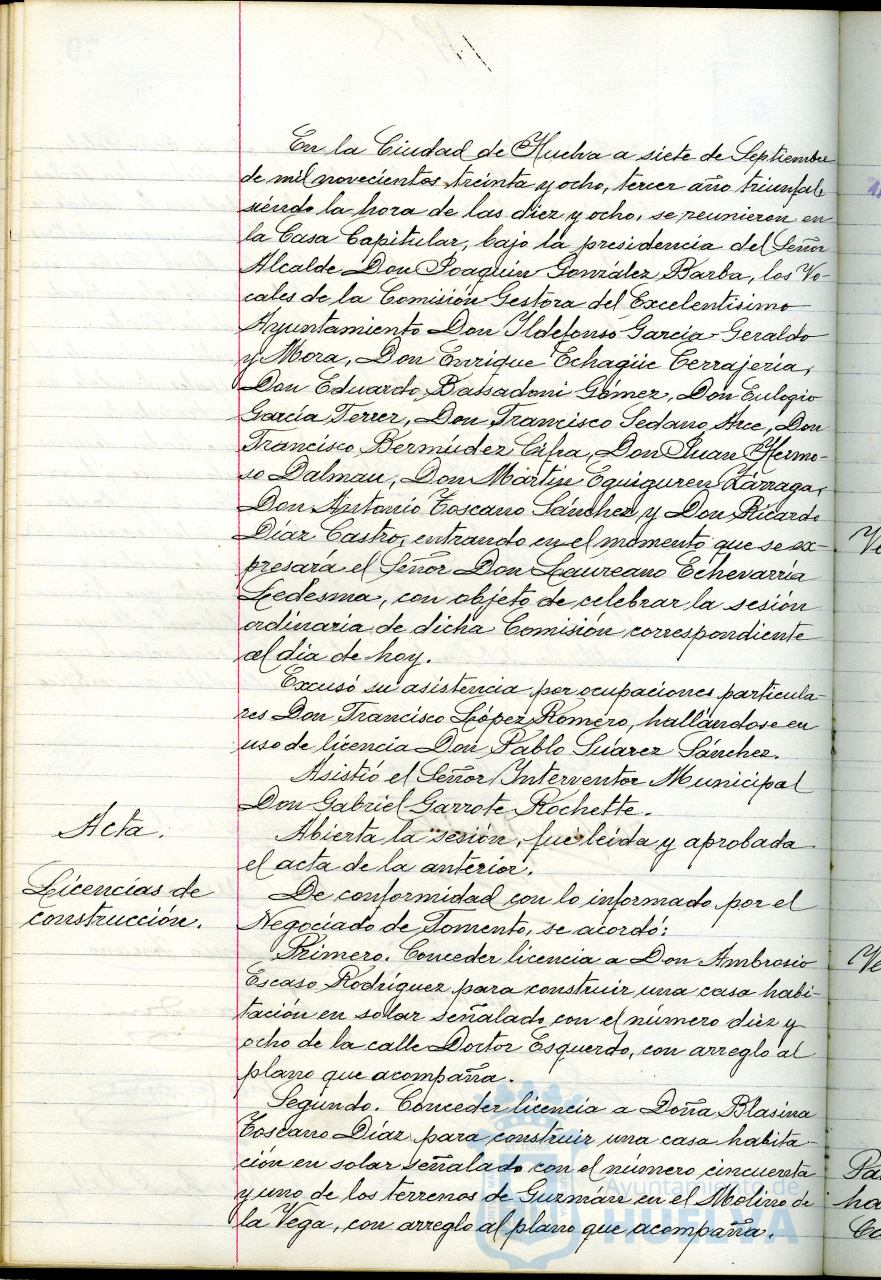 En la Ciudad de Huelva a siete de Septiembre
de mil novecientos treinta y ocho, tercer año triunfal
siendo la hora de las diez y ocho, se reunieron en
la Casa Capitular, bajo la presidencia del Señor
Alcalde Don Joaquín González Barba, los Vo-
cales de la Comisión Gestora del Excelentísimo
Ayuntamiento Don Ildefonso García-Geraldo
y Mora, Don Enrique Echagüie Cerrajería,
Don Eduardo Bassadoni Gómez, Don Eulogio
García Ferrer, Don Francisco Sedano Arce, Don
Francisco Bermúdez Cifra, Don Juan Hermo-
so Dalmau, Don Martín Eguiguren Lárraga,
Don Antonio Toscano Sánchez y Don Ricardo
Díaz Castro, entrando en el momento que se ex-
presará el Señor Don Laureano Echevarría
Ledesma, con objeto de celebrar la sesión
ordinaria de dicha Comisión correspondiente
al día de hoy.
Excusó su asistencia por ocupaciones particula-
res Don Francisco López Romero, hallándose en
uso de licencia Don Pablo Suárez Sánchez.
Asistió el Señor Interventor Municipal
Don Gabriel Garrote Rochette.
Acta.
Abierta la sesión, fue leída y aprobada
el acta de la anterior.
Licencias de
construcción.
De conformidad con lo informado por el
Negociado de Fomento, se acordó:
Primero. Conceder licencia a Don Ambrosio
Escaso Rodríguez para construir una casa habi-
tación en solar señalado con el número diez y
ocho de la calle Doctor Esquerdo, con arreglo al
plano que acompaña.
Segundo. Conceder licencia a Doña Blasina
Toscano Díaz para construir una casa habita-
ción en solar señalado con el número cincuenta
y uno de los terrenos de Guzmán en el Molino de
la Vega, con arreglo al plano que acompaña.
Ayuntamiento de
HUELVA